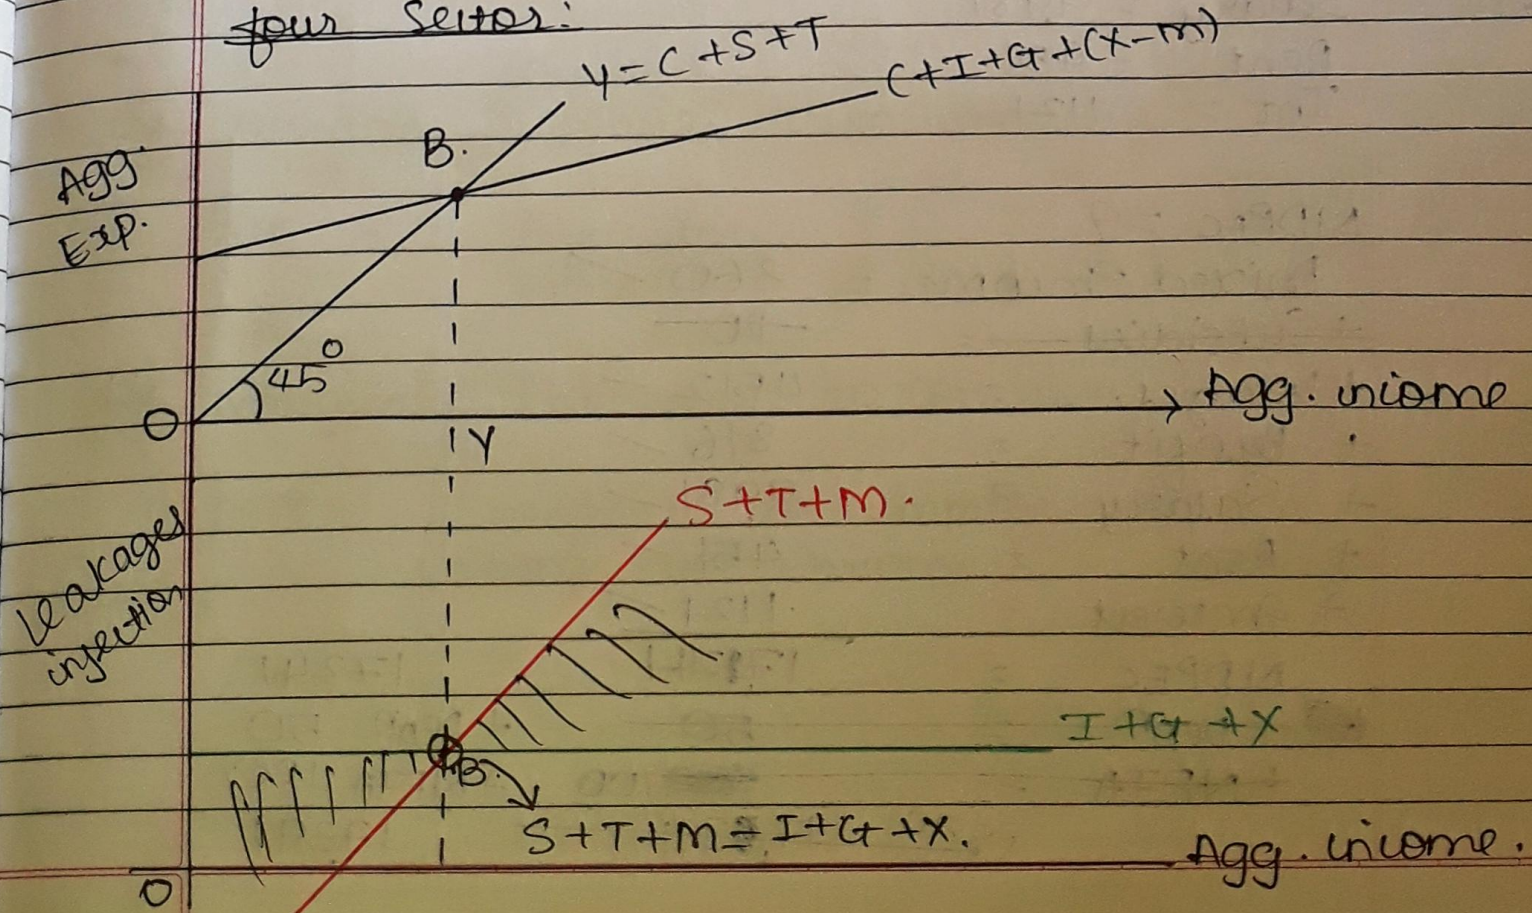 four Sector:
Y=C+S+T
C+I+G+(X-M)
B.
Agg.
Exp.
45°
O
Agg. income
Y
S+T+M.
Leakages
injection
I+G+X
B.
S+T+M=I+G+X.
Agg. income.
O